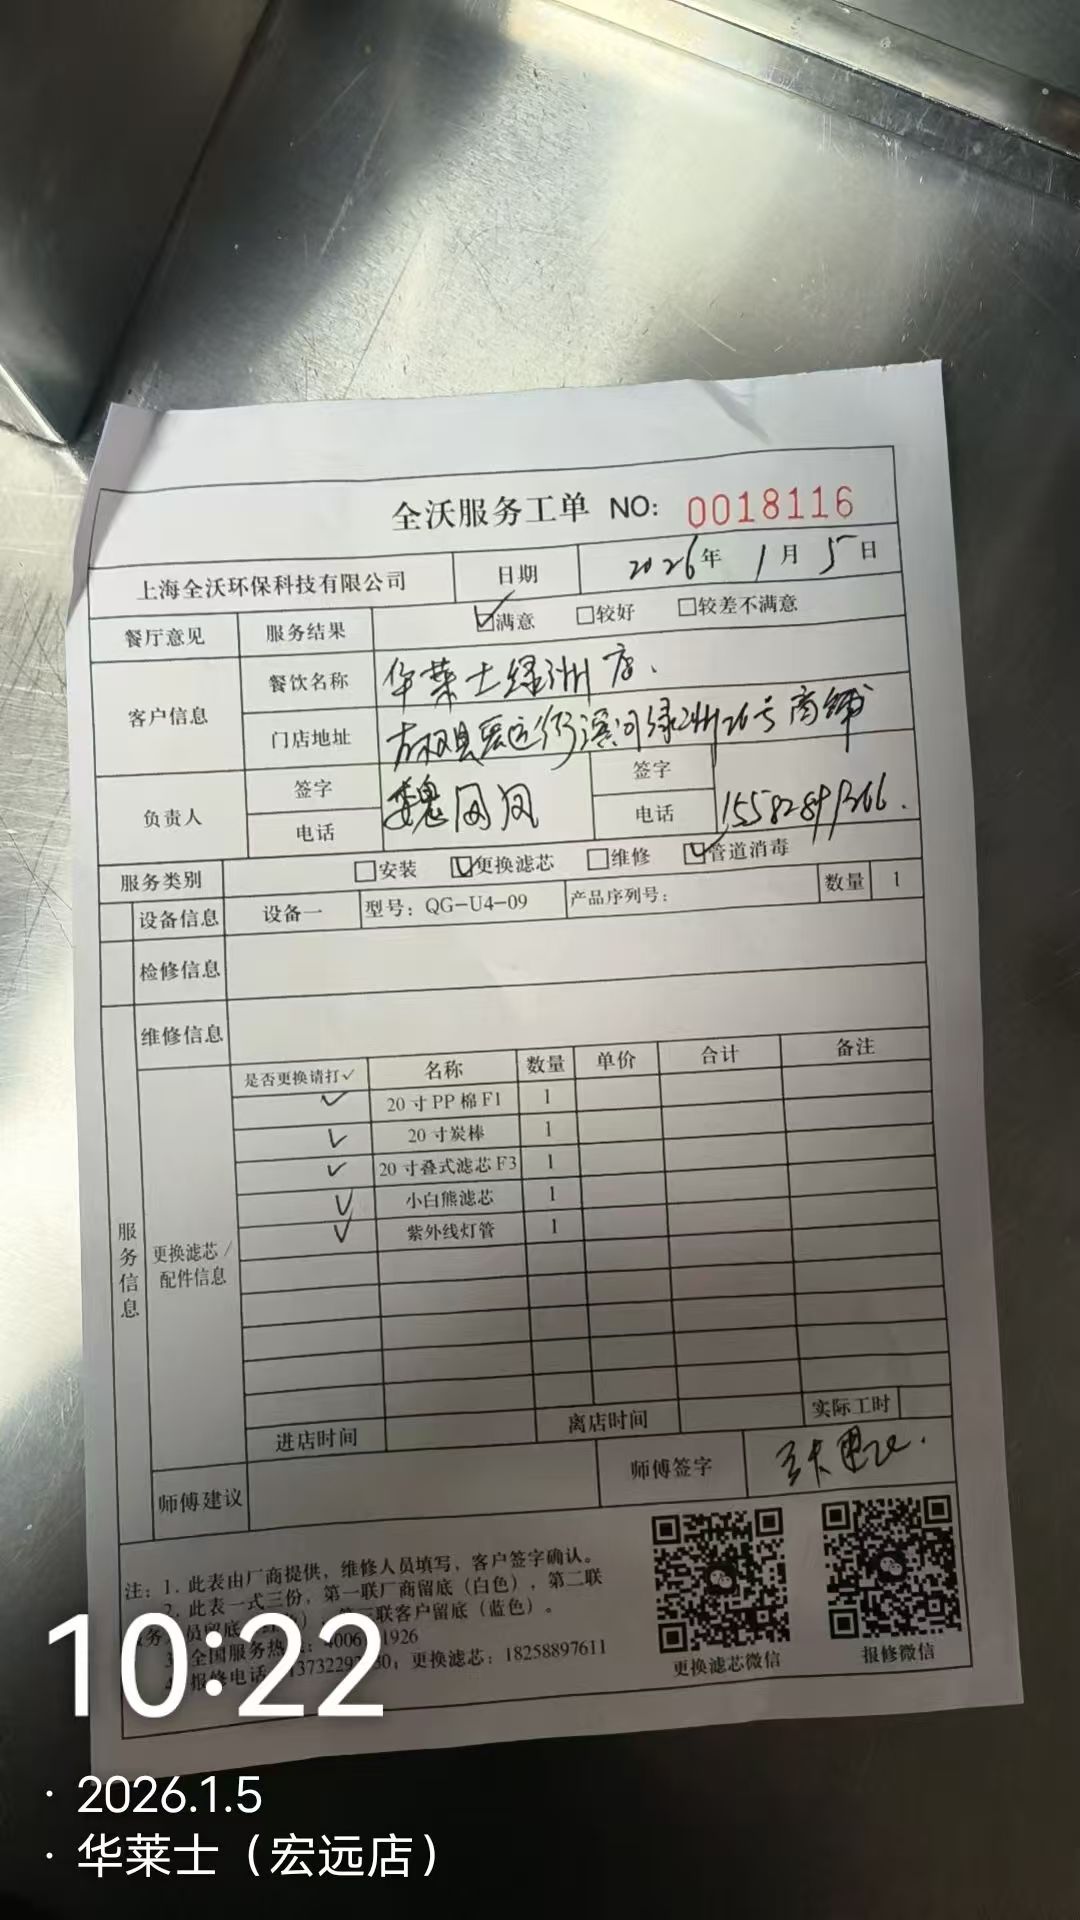 全沃服务工单 NO: 0018116
上海全沃环保科技有限公司 日期 2026年 1月 5日
餐厅意见 服务结果 ☑满意 □较好 □较差不满意
客户信息 餐饮名称 华莱士绿洲店.
门店地址 县宏远街溪河绿洲26号商铺
负责人 签字 魏 凤 签字
电话 电话
服务类别 □安装 ☑更换滤芯 □维修 ☑管道消毒
设备信息 设备一 型号: QG-U4-09 产品序列号: 数量 1
检修信息
维修信息
服务信息
更换滤芯/配件信息
是否更换请打✓ 名称 数量 单价 合计 备注
✓ 20寸PP棉F1 1
✓ 20寸炭棒 1
✓ 20寸叠式滤芯F3 1
✓ 小白熊滤芯 1
✓ 紫外线灯管 1
进店时间 离店时间 实际工时
师傅建议 师傅签字
注: 1. 此表由厂商提供, 维修人员填写, 客户签字确认。
2. 此表一式三份, 第一联厂商留底(白色), 第二联
服务 员留底 联客户留底(蓝色)。
全国服务热 : 4006 1926
报修电话 13732292 30; 更换滤芯: 18258897611
更换滤芯微信 报修微信
10:22
· 2026.1.5
· 华莱士（宏远店）